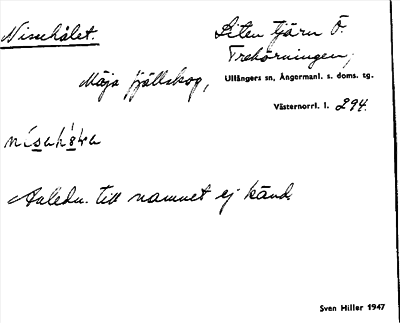 Nisehålet.
Liten tjärn Ö.
Trehörningen,
Mäja fjällskog,
Ullångers sn, Ångermanl. s. doms. tg.
Västernorrl. l. 294.
Anledn. till namnet ej känd.
Sven Hiller 1947